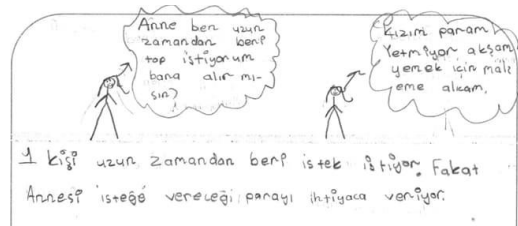 Anne ben uzun
zamandan beri
top istiyorum
bana alır mı-
sın?
Kızım param
Yetmiyor akşam
yemek için malz
eme alcam.
1 kişi uzun zamandan beri istek istiyor. Fakat
Annesi isteğe vereceği parayı ihtiyaca veriyor.